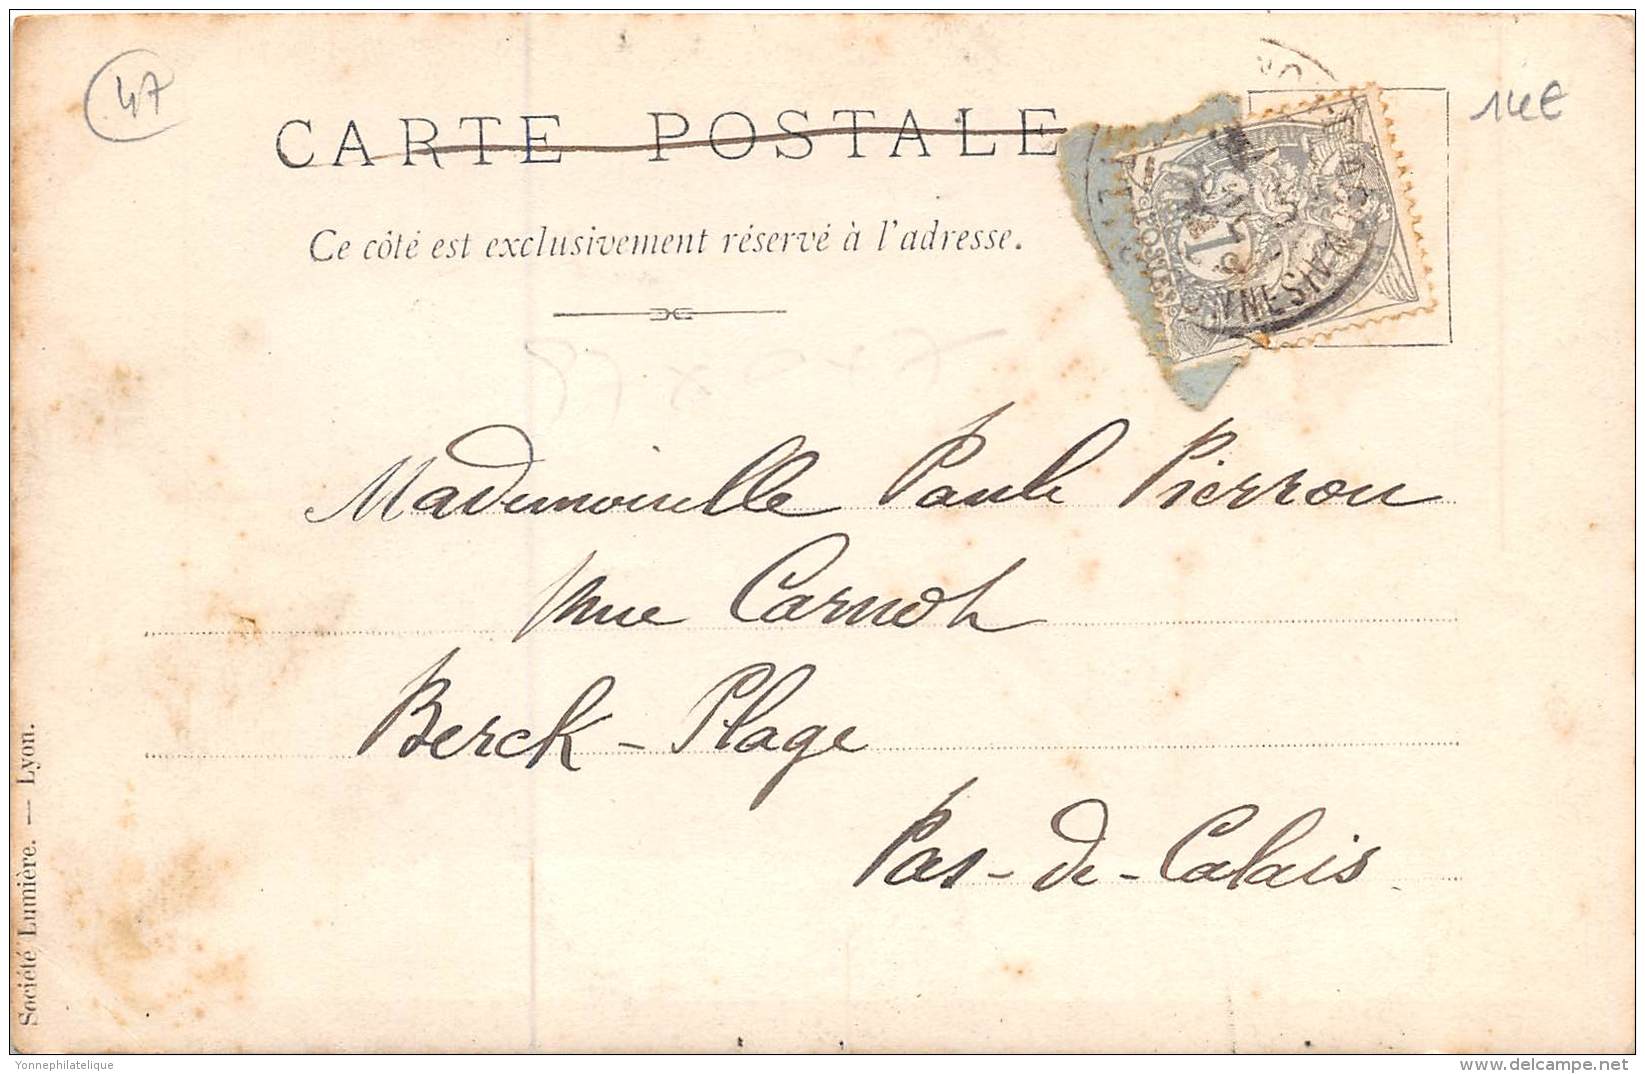 47
CARTE POSTALE
14€
Ce côté est exclusivement réservé à l'adresse.
POSTES
1c
Mademoiselle Paule Pierron
rue Carnot
Berck-Plage
Pas-de-Calais
Société Lumière. — Lyon.
Yonnephilatelique
delcampe.net